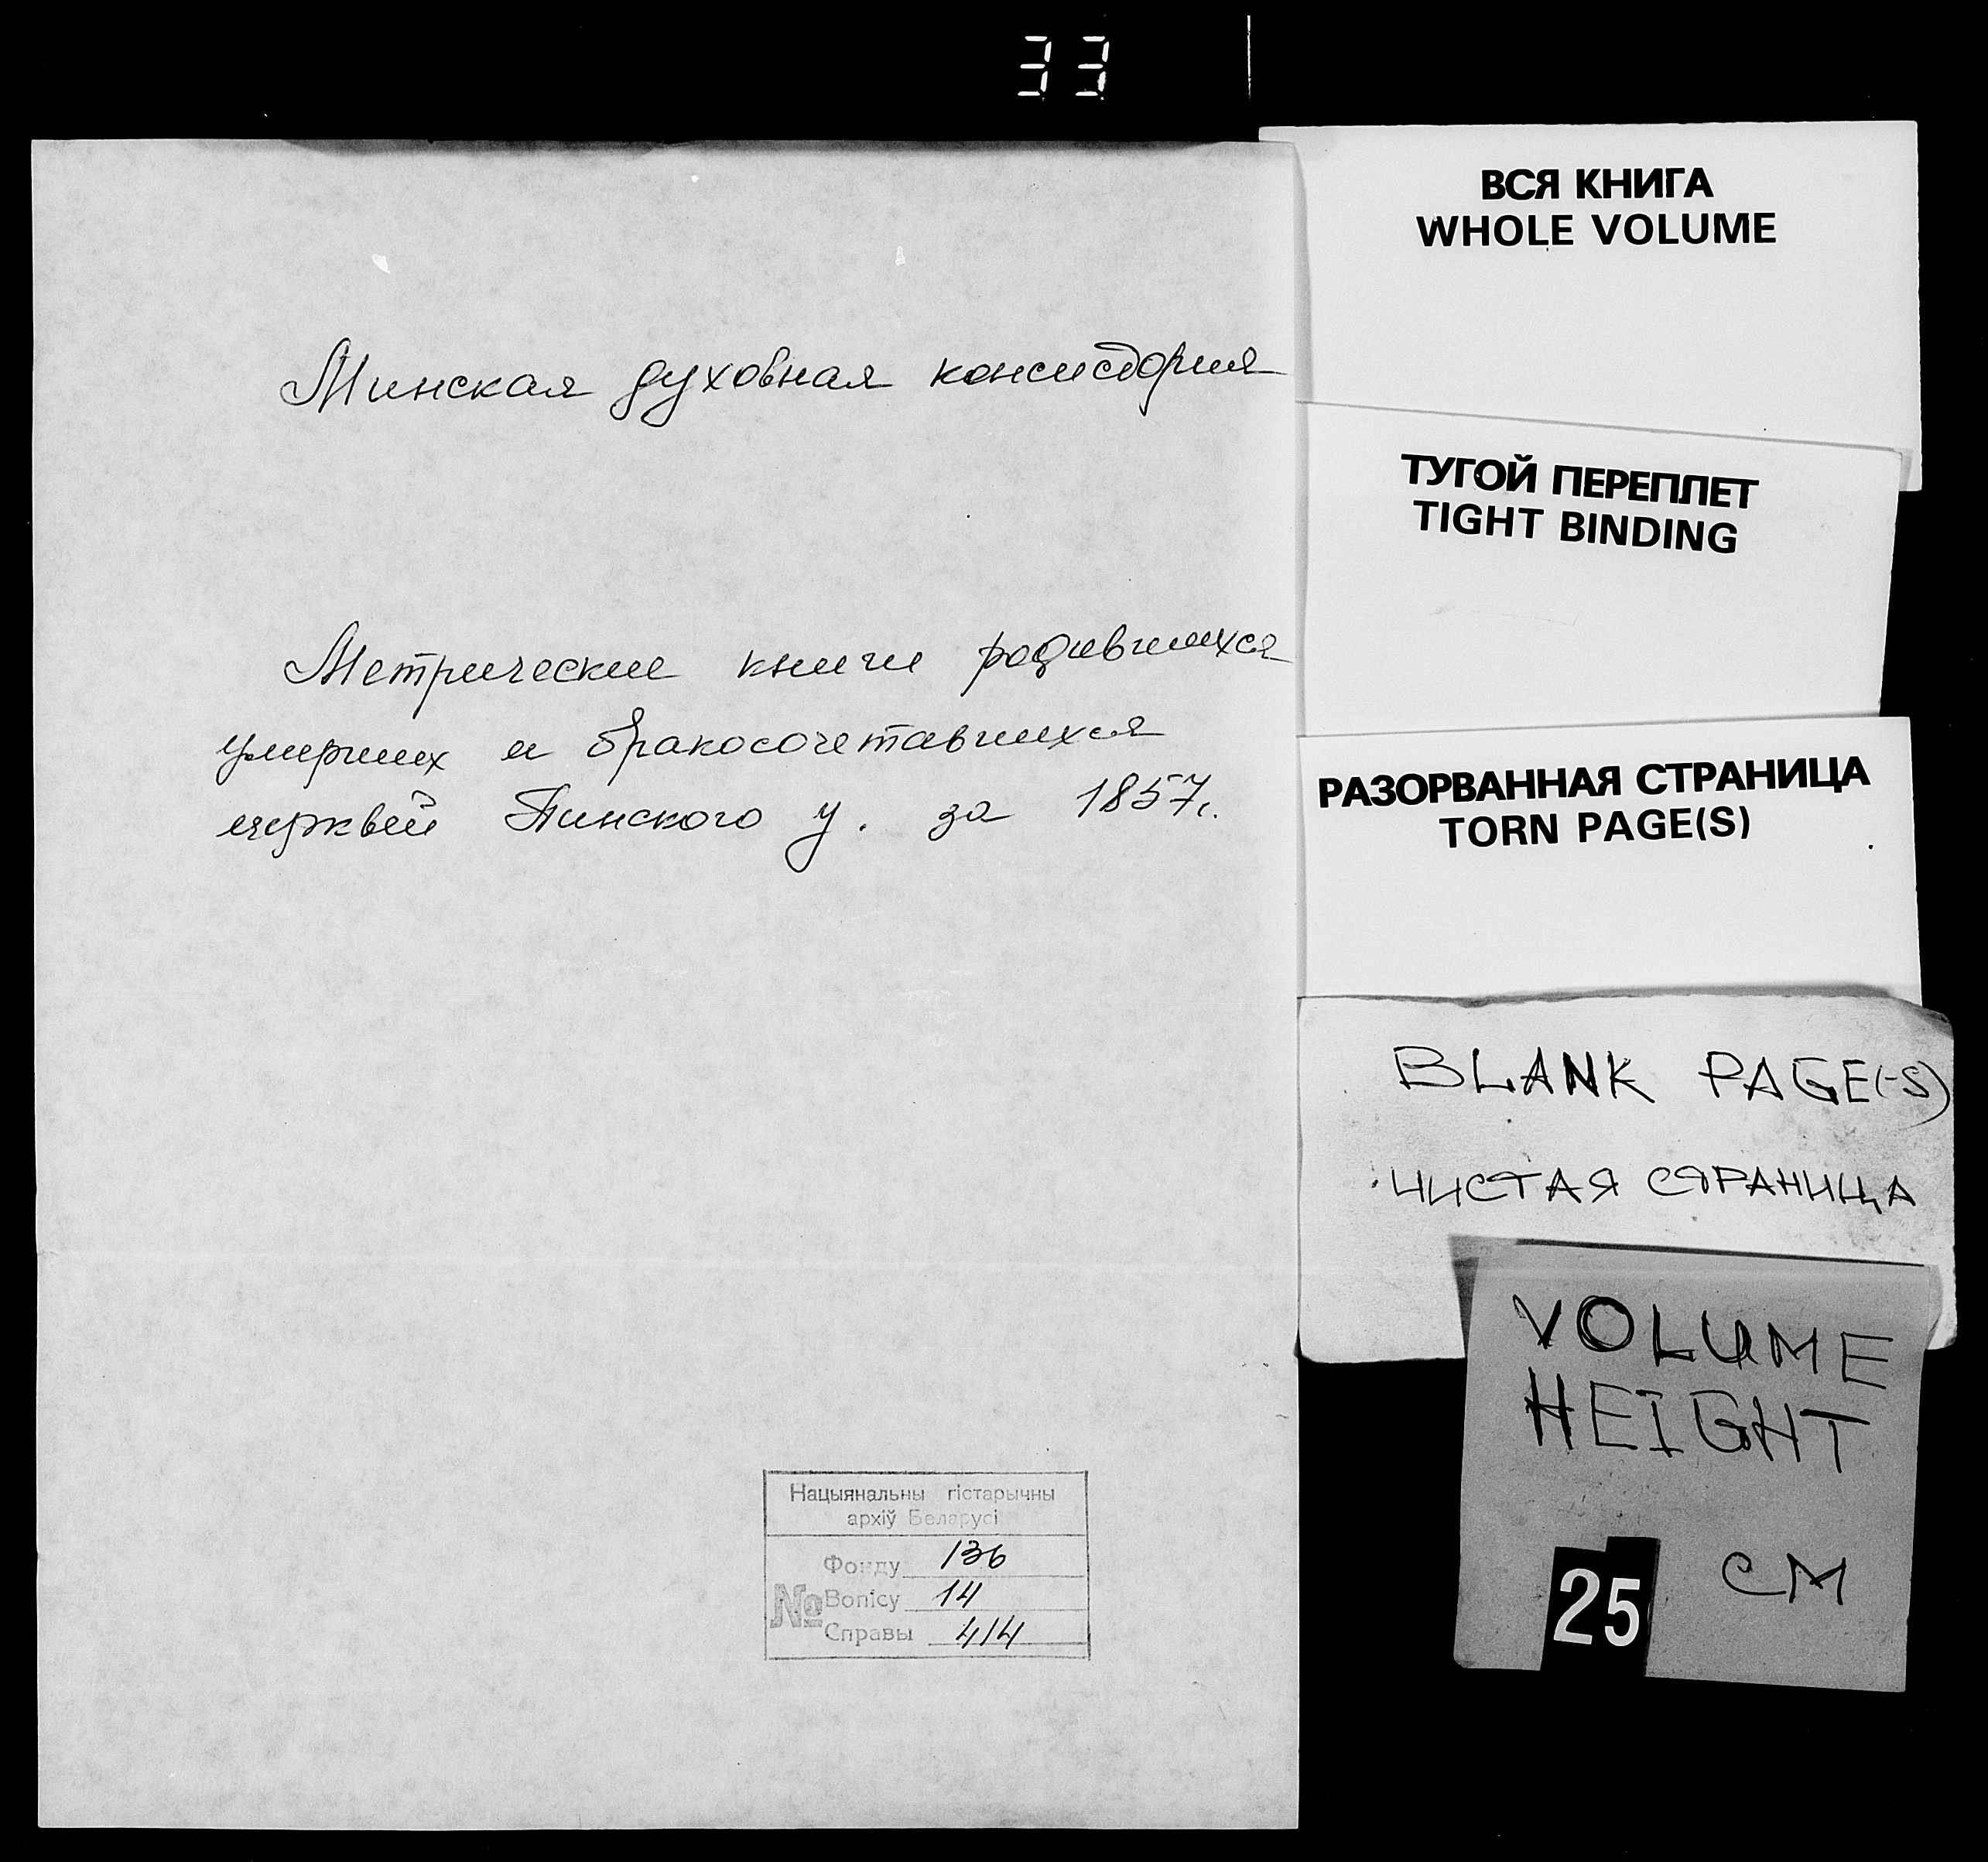 33
Минская духовная консистория
Метрические книги родившихся
умерших и бракосочетавшихся
церквей Пинского у. за 1857г.
Нацыянальны гістарычны
архіў Беларусі
Фонду 136
№ Вопісу 14
Справы 414
ВСЯ КНИГА
WHOLE VOLUME
ТУГОЙ ПЕРЕПЛЕТ
TIGHT BINDING
РАЗОРВАННАЯ СТРАНИЦА
TORN PAGE(S)
BLANK PAGE(-S)
ЧИСТАЯ СТРАНИЦА
VOLUME
HEIGHT
25 CM